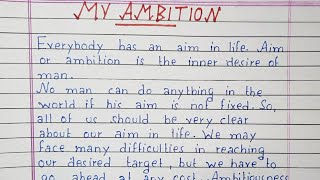 MY AMBITION
Everybody has an aim in life. Aim
or ambition is the inner desire of
man.
No man can do anything in the
world if his aim is not fixed. So,
all of us should be very clear
about our aim in life. We may
face many difficulties in reaching
our desired target, but we have to
go ahead at any cost. Ambitiousness